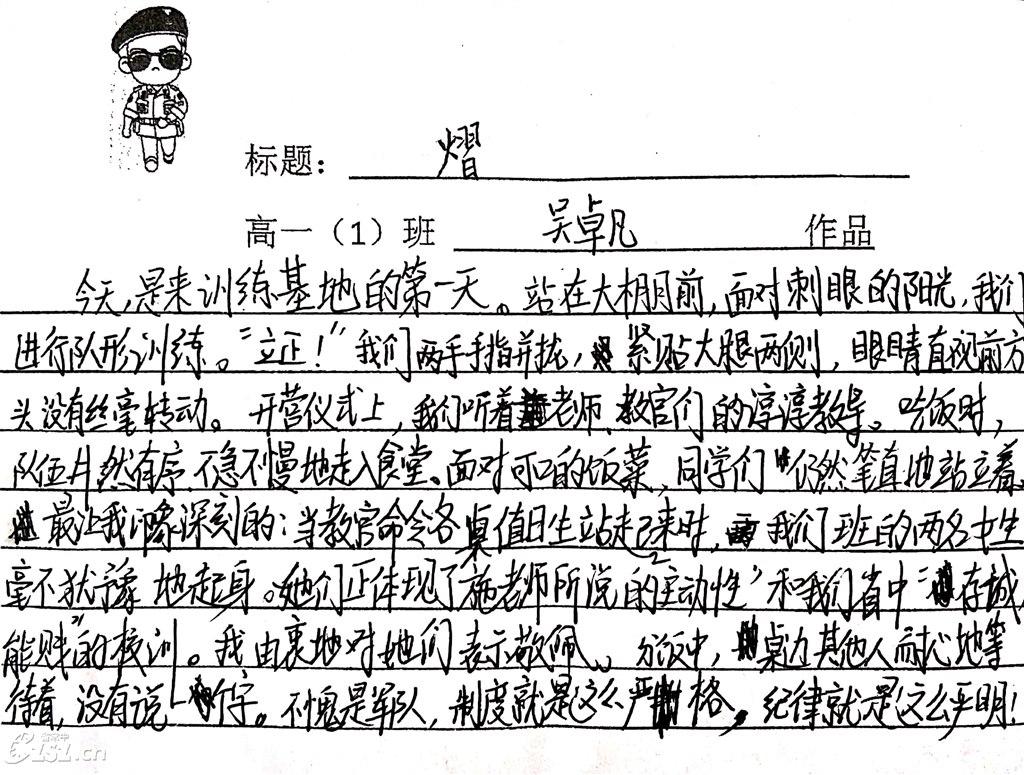 标题： 熠
高一（1）班 吴卓凡 作品
今天，是来训练基地的第一天。站在大棚前，面对刺眼的阳光，我们
进行队形训练。“立正！”我们两手手指并拢，紧贴大腿两侧，眼睛直视前方
头没有丝毫转动。开营仪式上，我们听着老师、教官们的谆谆教导。吃饭时，
队伍井然有序，不急不慢地走入食堂、面对可口的饭菜，同学们仍然笔直地站立着。
最让我印象深刻的：当教官命令各桌值日生站起来时，我们班的两名女生
毫不犹豫地起身。她们正体现了施老师所说的“主动性”和我们省中“存诚
能贱”的校训。我由衷地对她们表示敬佩。分饭中，桌边其他人耐心地等
待着，没有说一个字。不愧是军队，制度就是这么严格。纪律就是这么严明！